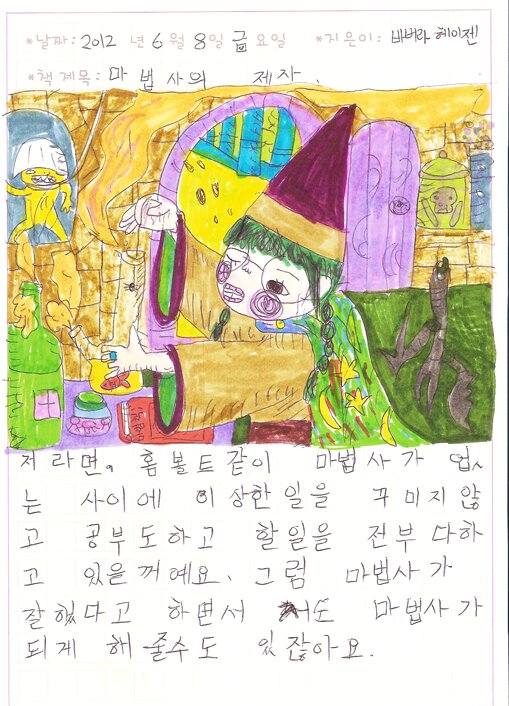 *날짜: 2012 년 6 월 8 일 금 요일 *지은이: 바버라 헤이젠
*책 제목: 마법사의 제자.
저라면, 홈볼트같이 마법사가 업
는 사이에 이상한일을 꾸미지않
고 공부도하고 할일을 전부 다하
고 있을꺼예요. 그럼 마법사가
잘했다고 하면서 저도 마법사가
되게 해 줄수도 있잖아요.